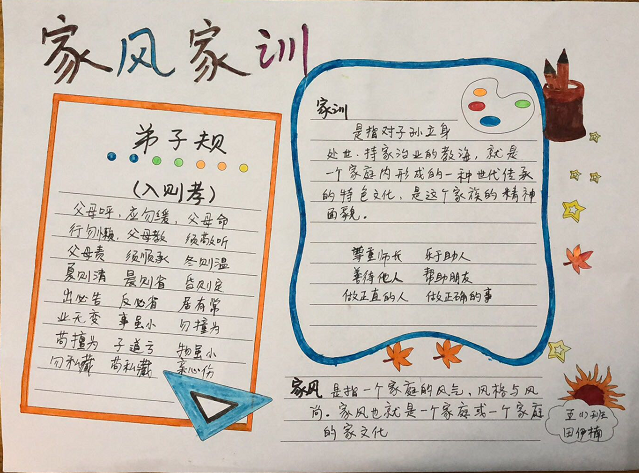 家风家训
弟子规
(入则孝)
父母呼，应勿缓，父母命
行勿懒，父母教 须敬听
父母责 须顺承 冬则温
夏则清 晨则省 昏则定
出必告 反必省 居有常
业无变 事虽小 勿擅为
苟擅为 子道亏 物虽小
勿私藏 苟私藏 亲心伤
家训
是指对子孙立身
处世、持家治业的教诲，就是
一个家庭内形成的一种世代传承
的特色文化，是这个家族的精神
面貌。
尊重师长 乐于助人
善待他人 帮助朋友
做正直的人 做正确的事
家风 是指一个家庭的风气、风格与风
尚。家风也就是一个家庭或一个家庭
的家文化
田伊楠